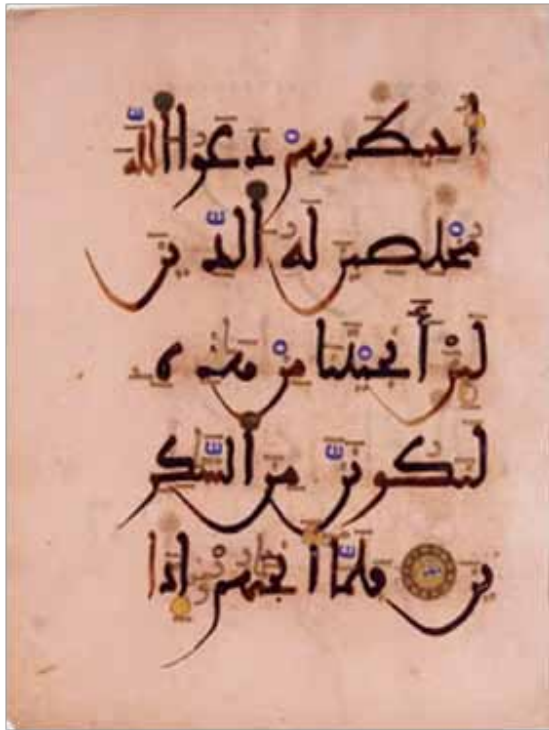 أحيط بهم دعوا الله
مخلصين له الدين
لئن أنجيتنا من هذه
لنكونن من الشكر
ين فلما أنجيهم إذا